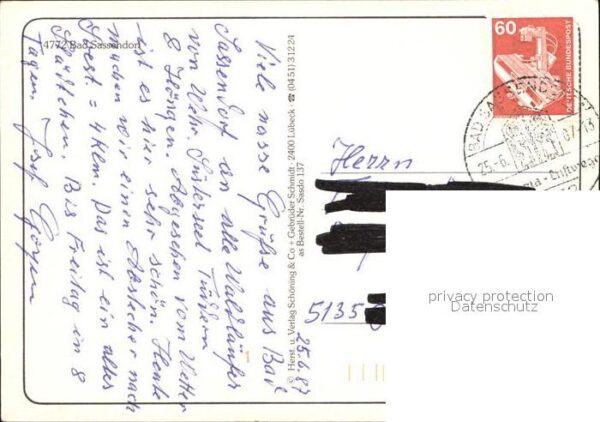 4772 Bad Sassendorf
Viele nasse Grüße aus Bad
Sassendorf an alle Waldläufer
von Wehr, Süsterseel Tüddern
& Höngen. Abgesehen vom Wetter
ist es hier sehr schön. Heute
machen wir einen Abstecher nach
Soest = 4 Klm. Das ist ein altes
Städtchen. Bis Freitag in 8
Tagen. Josef
25.6.87
© Herst. u. Verlag Schöning & Co + Gebrüder Schmidt, 2400 Lübeck ☎ (04 51) 3 12 24
as Bestell-Nr. Sasdo 137
60
DEUTSCHE BUNDESPOST
BAD SASSENDORF
25.-6.87-13
Herrn
5135
privacy protection
Datenschutz